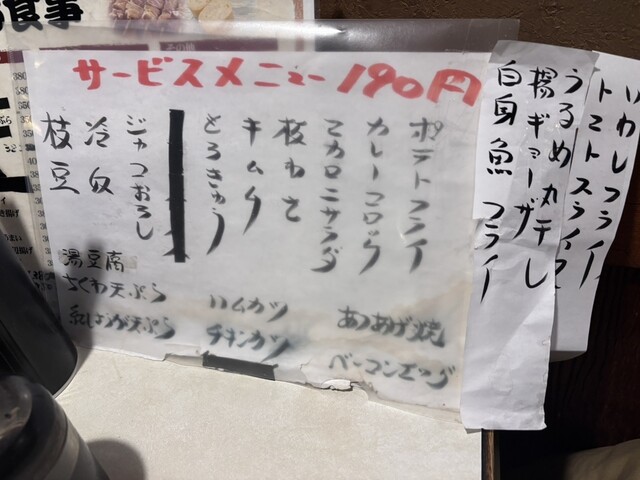 サービスメニュー190円
ポテトフライ
カレーコロッケ
マカロニサラダ
板わさ
キムチ
とろきゅう
ジャコおろし
冷奴
枝豆
湯豆腐
ちくわ天ぷら
紅しょうが天ぷら
ハムカツ
チキンカツ
あつあげ焼
ベーコンエッグ
いわしフライ
トマトスライス
うるめ丸干し
揚ギョーザ
白身魚フライ
食事